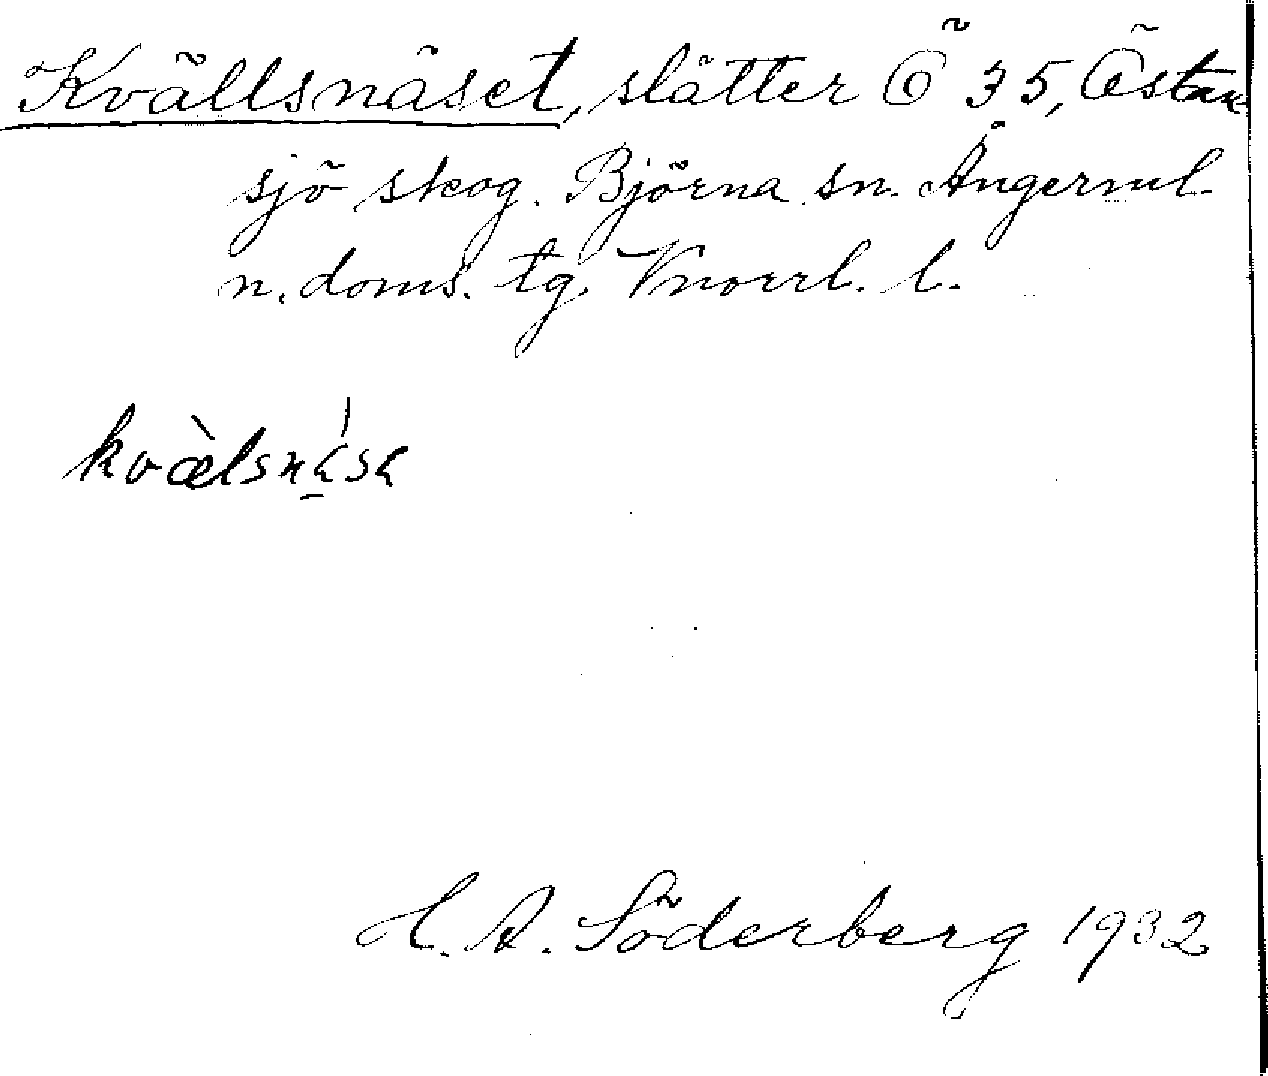 Kvällsnäset, slåtter Ö 35, Östan-
sjö skog. Björna sn. Ångerml.
n. doms. tg. Vnorrl. l.
kvæ̀lsnä́sä
H. A. Söderberg 1932